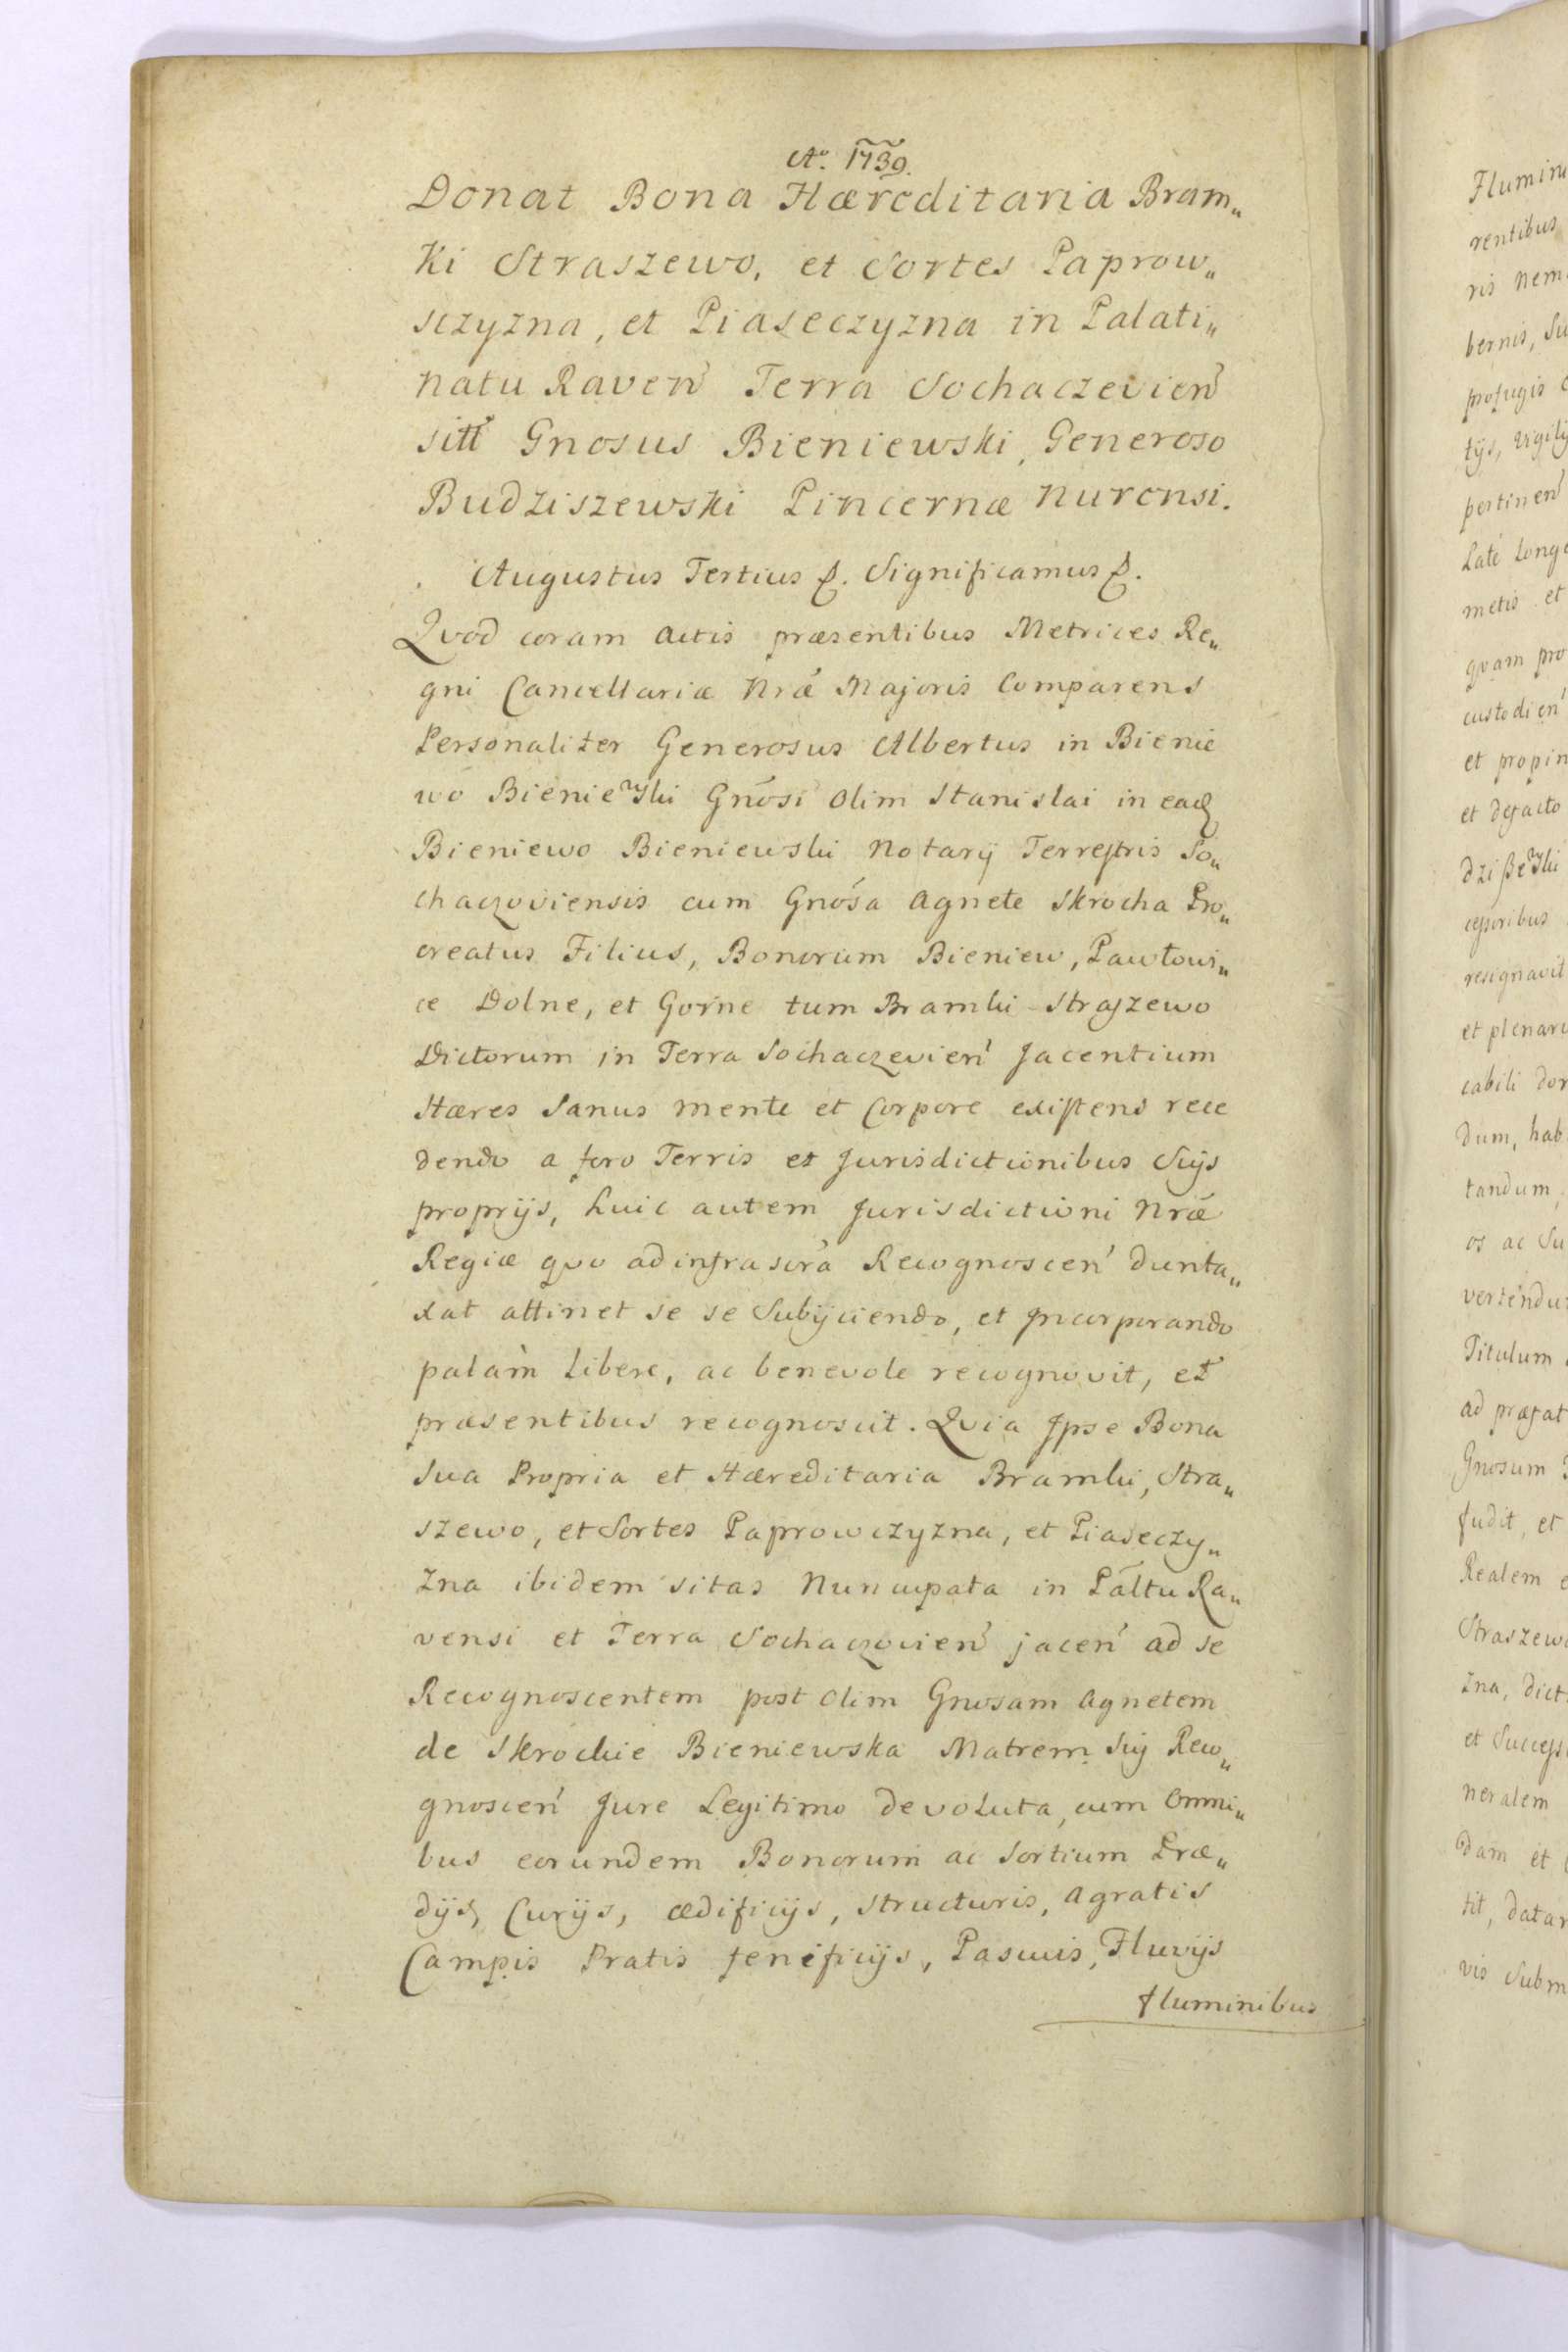 Aº. 1739.
Donat Bona Hæreditaria Bram„
ki Straszewo, et Sortes Paprow„
sczyzna, et Piaseczyzna in Palati„
natu Raven̄ Terra Sochaczevien̄
sitt̄ Gnosus Bieniewski, Generoso
Budziszewski Pincernæ Nurensi.
Augustus Tertius &. Significamus &.
Qvod coram Actis præsentibus Metrices Re„
gni Cancellariæ Nræ Majoris Comparens
Personaliter Generosus Albertus in Bienie
wo Bieniewski Gnosi olim Stanislai in ead
Bieniewo Bieniewski Notarij Terrestris So„
chaczoviensis cum Gnosa Agnete Skrocha Pro„
creatus Filius, Bonorum Bieniew, Pawłowi„
ce Dolne, et Gorne tum Bramki Straszewo
Dictorum in Terra Sochaczevien̄ Jacentium
Hæres Sanus mente et Corpore existens rece
dendo a foro Terris et Jurisdictionibus Suijs
proprijs, huic autem Jurisdictioni Nræ
Regiæ qvo ad infrascra Recognoscen̄ dunta„
xat attinet se se Subijciendo, et Jncorporando
palam libere, ac benevole recognovit, et
præsentibus recognoscit. Qvia Jpse Bona
Sua Propria et Hæreditaria Bramki, Stra„
szewo, et Sortes Paprowczyzna, et Piaseczy„
zna ibidem sitas Nuncupata in Páltu Ra„
vensi et Terra Sochaczovien̄ jacen̄ ad se
Recognoscentem post olim Gnosam Agnetem
de Skrochie Bieniewska Matrem Suj Reco„
gnoscen̄ Jure Legitimo devoluta, cum Omni„
bus eorundem Bonorum ac Sortium Præ„
dijs, Curijs, ædificijs, structuris, Agratis
Campis Pratis fenificijs, Pascuis, Fluvijs
fluminibus
Flumin
rentibus
ris nem
bernis, Su
profugis
tijs, vigilij
pertinen̄
Late Longe
metis et
qvam pro
custodien̄
et propin
et defacto
dzißewski
cessoribus
resignavit
et plenari
cabili don
dum, hab
tandum
os ac Su
vertendu
Titulum
ad præfat
Gnosum
fudit, et
Realem
Straszewo
zna, dict
et Success
neralem
dam et
tit, datar
vis Subm